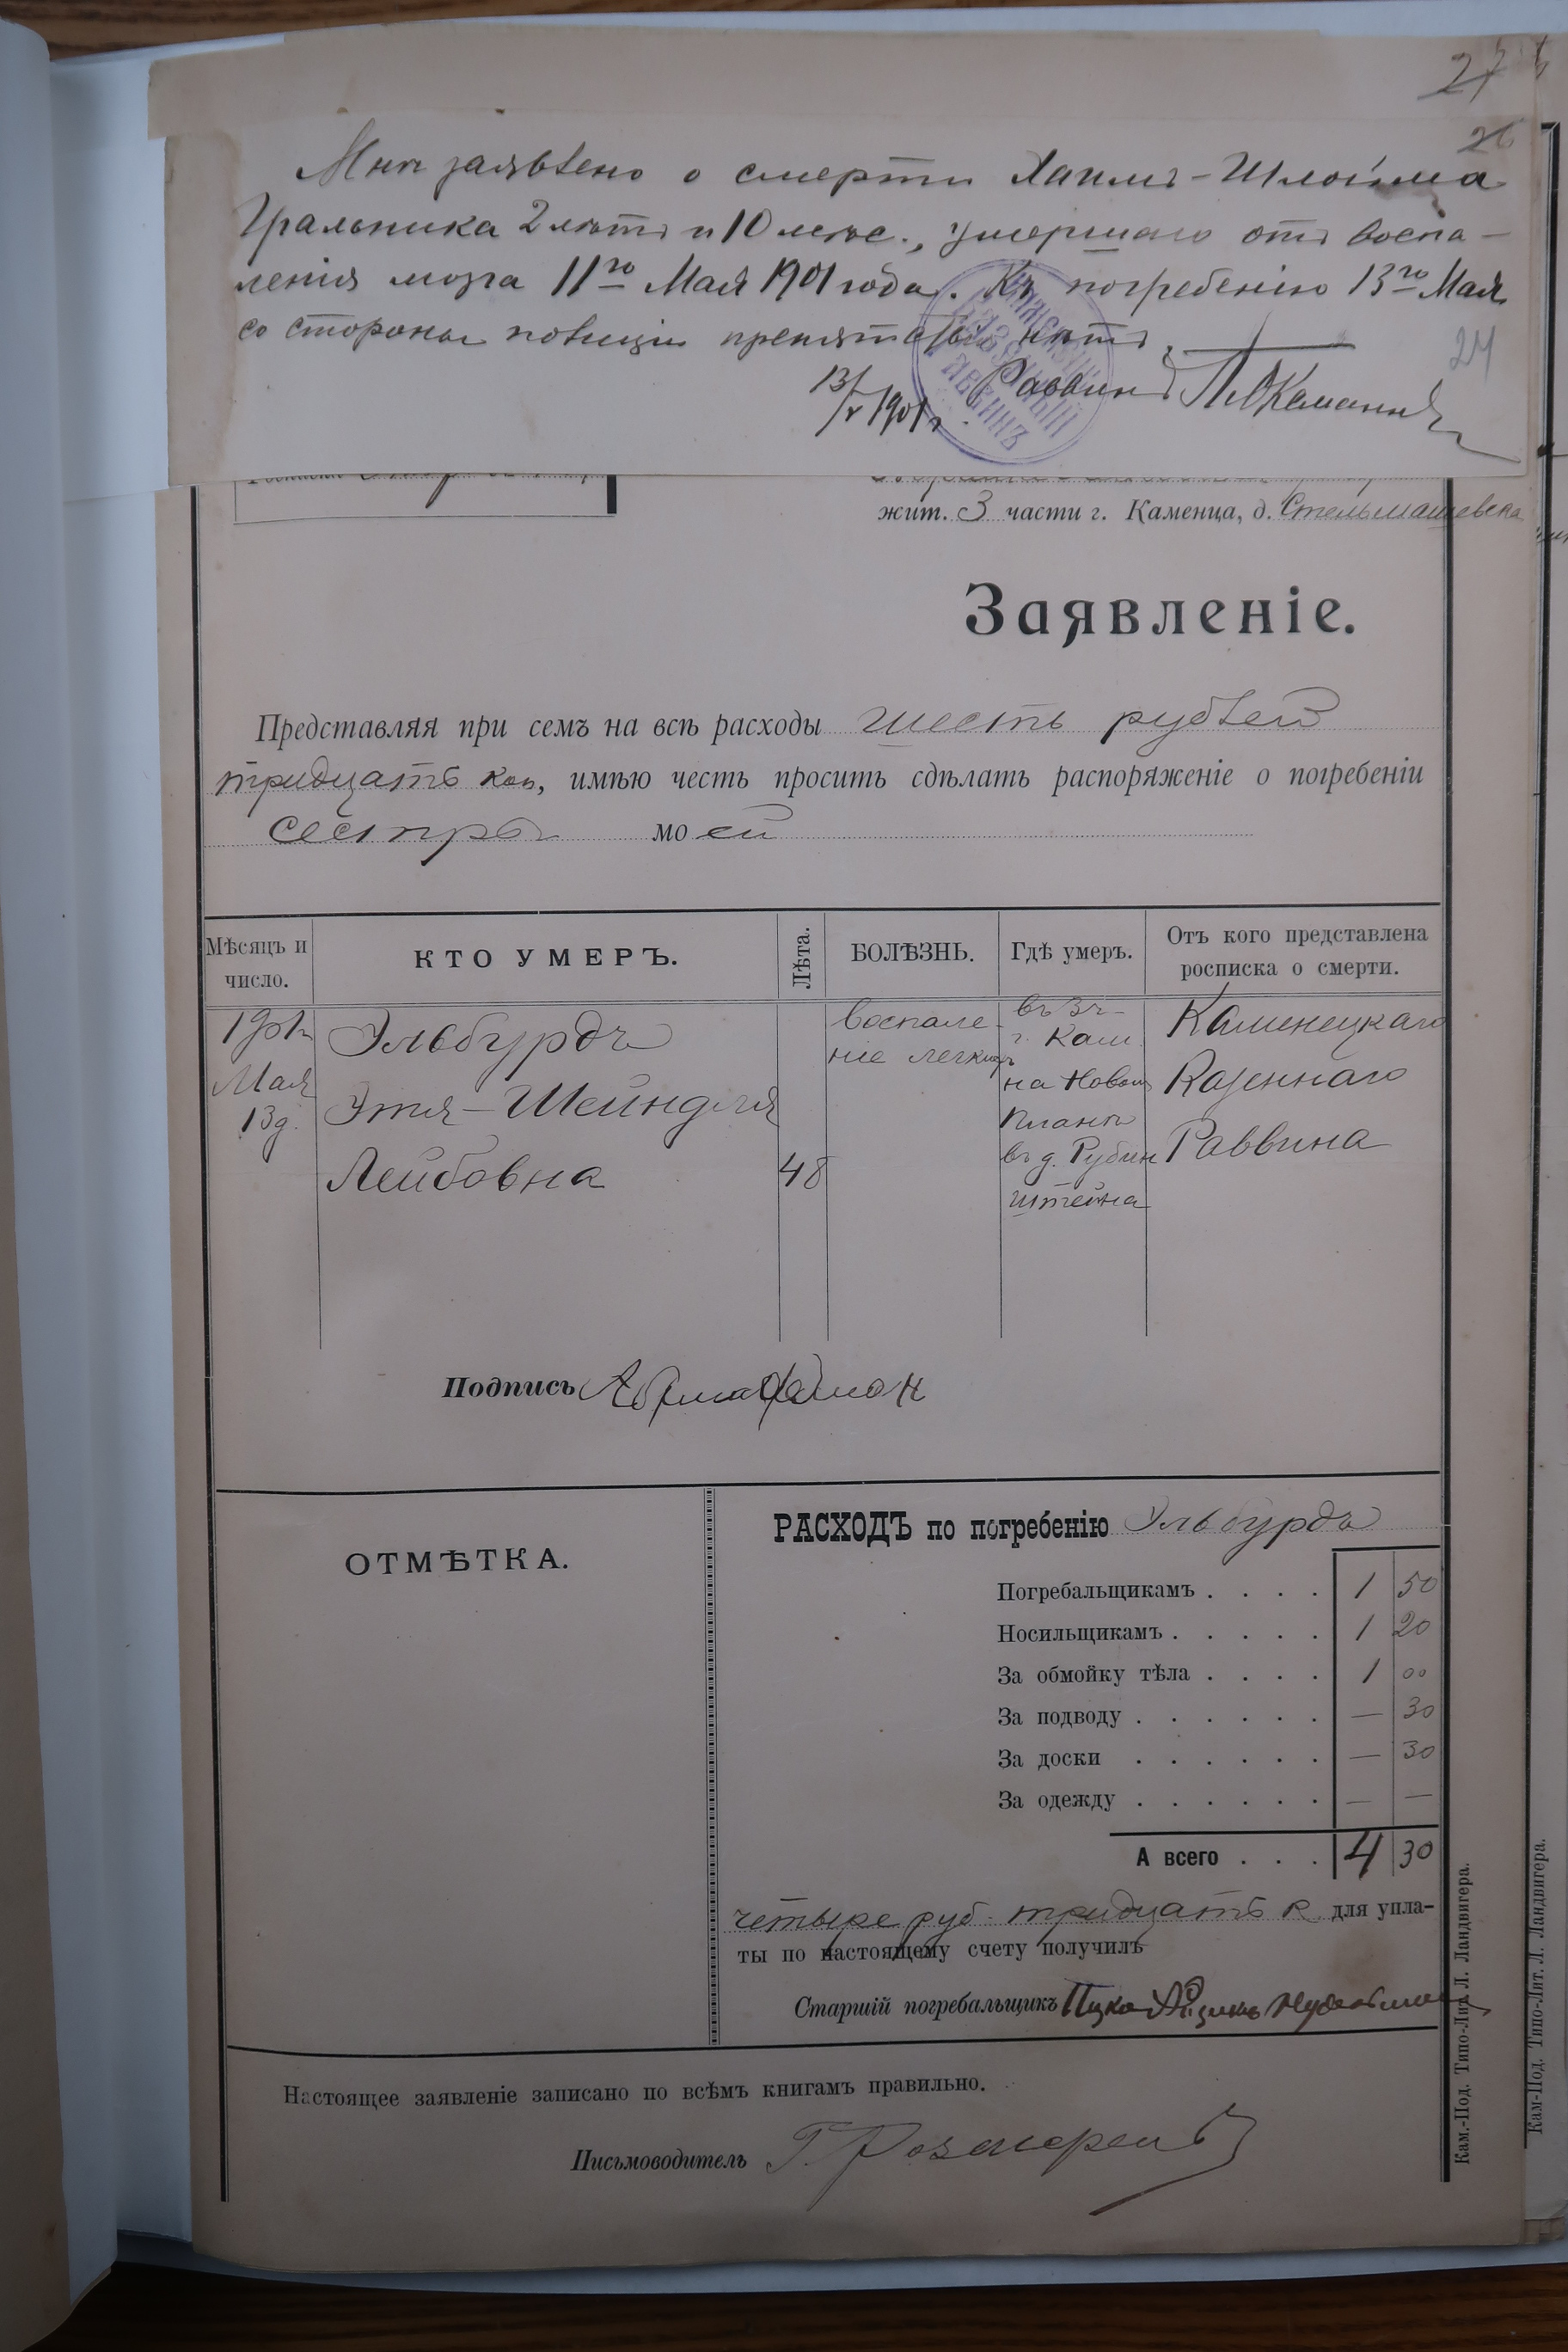 27
26
Мнѣ заявлено о смерти Хаимъ-Шлоима
Гральника 2 лѣтъ и 10 мѣс., умершаго отъ воспа-
ленія мозга 11го Мая 1901 года. Къ погребенію 13го Мая
со стороны полиціи препятствій нѣтъ
24
Раввинъ
13/V 1901 г.
жит. 3 части г. Каменца, д. Стельмашевска
Заявленіе.
Представляя при семъ на всѣ расходы шесть рублей
тридцать коп, имѣю честь просить сдѣлать распоряженіе о погребеніи
сестры моей
Мѣсяцъ и число. КТО УМЕРЪ. Лѣта. БОЛѢЗНЬ. Гдѣ умеръ. Отъ кого представлена росписка о смерти.
1901 Мая 13 д. Эльбурдъ Этля-Шейндля Лейбовна 48 воспаленіе легкихъ въ 3 ч. г. Кам. на Новомъ Планѣ въ д. Рубинштейна Каменецкаго Казеннаго Раввина
Подпись
ОТМѢТКА.
РАСХОДЪ по погребенію Эльбурдъ
Погребальщикамъ . . . . 1 50
Носильщикамъ . . . . . 1 20
За обмойку тѣла . . . . 1 00
За подводу . . . . . . — 30
За доски . . . . . . — 30
За одежду . . . . . . — —
А всего . . . 4 30
четыре руб. тридцать к. для упла-
ты по настоящему счету получилъ
Старшій погребальщикъ Ицко Айзикъ Нудельман
Настоящее заявленіе записано по всѣмъ книгамъ правильно.
Письмоводитель
Кам.-Под. Типо-Лит. Л. Ландвигера.
Кам-Под. Типо-Лит. Л. Ландвигера.